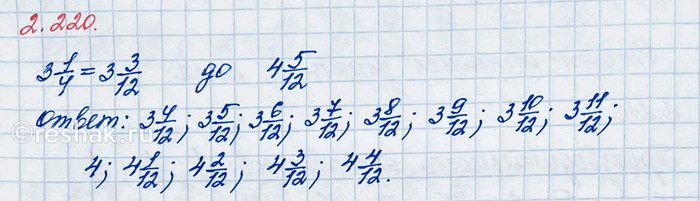 2.220.
3 1/4 = 3 3/12 до 4 5/12
ответ: 3 4/12; 3 5/12; 3 6/12; 3 7/12; 3 8/12; 3 9/12; 3 10/12; 3 11/12;
4; 4 1/12; 4 2/12; 4 3/12; 4 4/12.
©reshak.ru